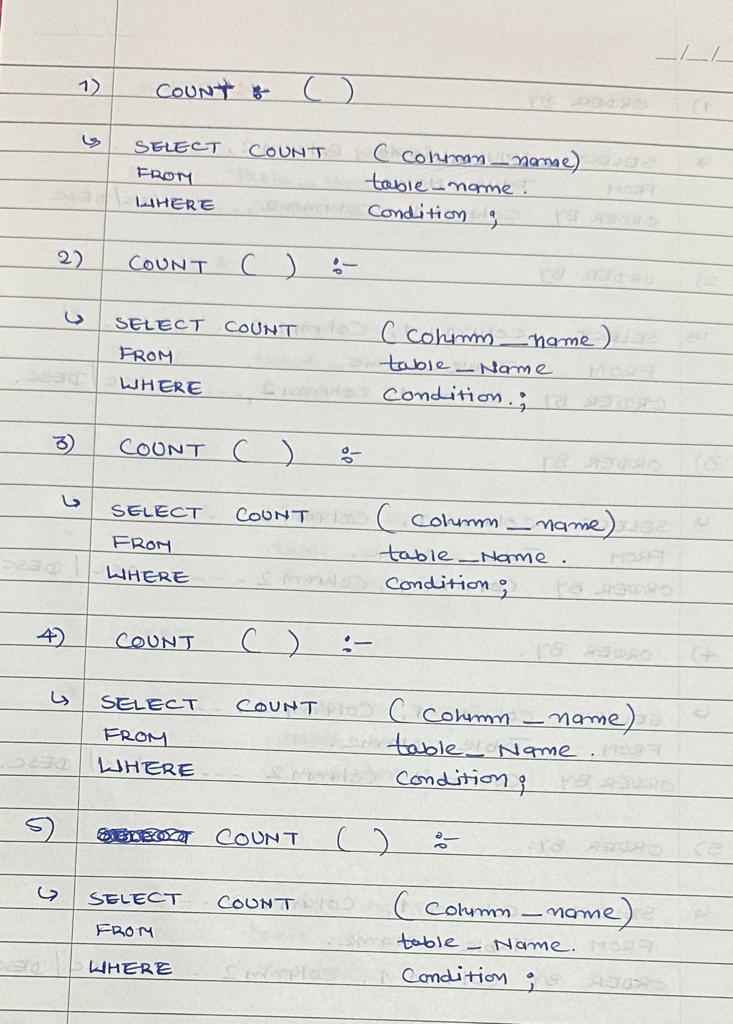 _/_/_
1) COUNT :- ( )
↳ SELECT COUNT ( column_name)
FROM table_name.
WHERE Condition ;
2) COUNT ( ) :-
↳ SELECT COUNT ( column_name)
FROM table_Name
WHERE Condition.;
3) COUNT ( ) :-
↳ SELECT COUNT ( column_name)
FROM table_Name.
WHERE Condition;
4) COUNT ( ) :-
↳ SELECT COUNT ( column_name)
FROM table_Name.
WHERE Condition;
5) COUNT ( ) :-
↳ SELECT COUNT ( column_name)
FROM table_Name.
WHERE Condition ;